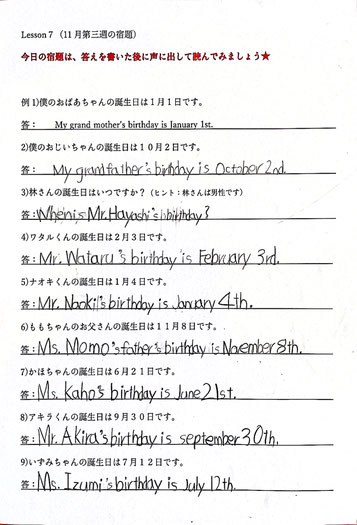 Lesson 7 （11月第三週の宿題）
今日の宿題は、答えを書いた後に声に出して読んでみましょう★
例1)僕のおばあちゃんの誕生日は１月１日です。
答： My grand mother's birthday is January 1st.
2)僕のおじいちゃんの誕生日は１０月２日です。
答： My grandfather's birthday is October 2nd.
3)林さんの誕生日はいつですか？（ヒント：林さんは男性です）
答：When is Mr. Hayashi's birthday?
4)ワタルくんの誕生日は２月３日です。
答：Mr. Wataru's birthday is February 3rd.
5)ナオキくんの誕生日は１月４日です。
答：Mr. Naoki's birthday is January 4th.
6)ももちゃんのお父さんの誕生日は１１月８日です。
答：Ms. Momo's father's birthday is November 8th.
7)かほちゃんの誕生日は６月２１日です。
答：Ms. Kaho's birthday is June 21st.
8)アキラくんの誕生日は９月３０日です。
答：Mr. Akira's birthday is september 30th.
9)いずみちゃんの誕生日は７月１２日です。
答：Ms. Izumi's birthday is July 12th.